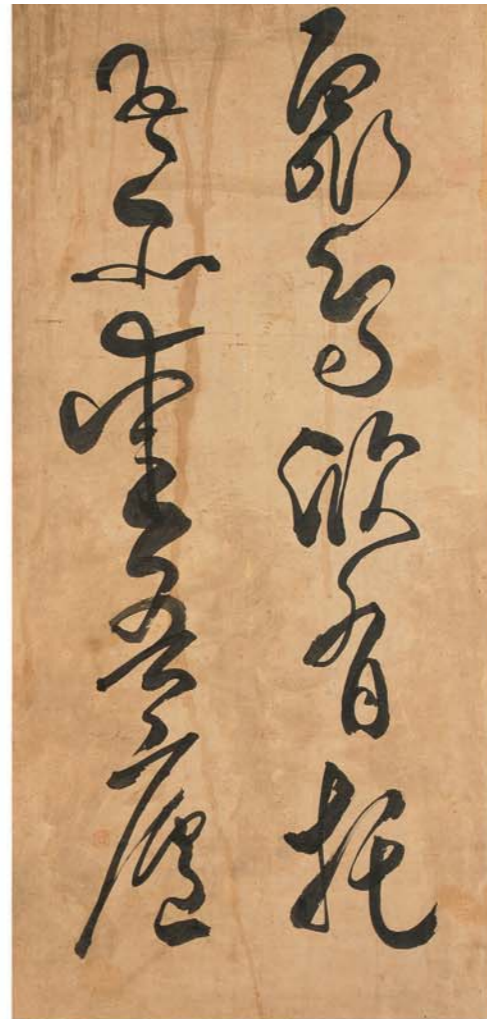 眾鳥欣有托
吾亦愛吾廬